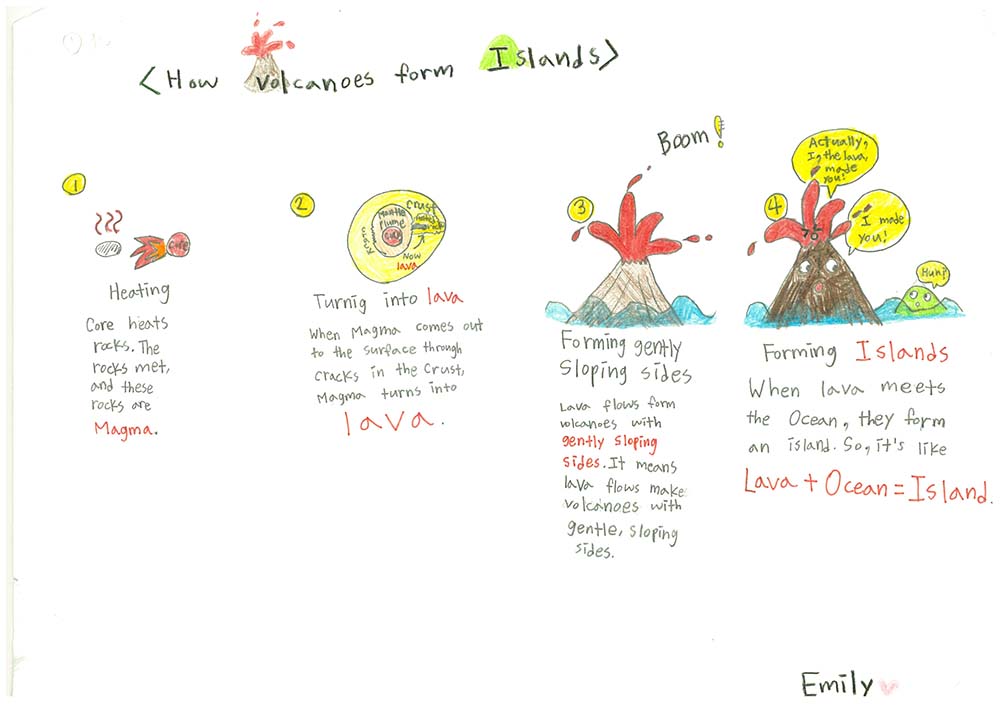 <How Volcanoes form Islands>
1
Core
Heating
Core heats
rocks. The
rocks met,
and these
rocks are
Magma.
2
Crust
Mantle
Plume
Core
Now
lava
Turnig into lava
When Magma comes out
to the surface through
cracks in the Crust,
Magma turns into
lava.
Boom!
3
Forming gently
sloping sides
Lava flows form
volcanoes with
gently sloping
sides. It means
lava flows make
volcanoes with
gentle, sloping
sides.
4
Actually,
I, the lava,
made
you!
I made
you!
Huh?
Forming Islands
When lava meets
the Ocean, they form
an island. So, it's like
Lava + Ocean = Island.
Emily